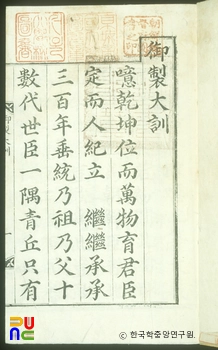 御製大訓
噫乾坤位而萬物育君臣
定而人紀立 繼繼承承
三百年垂統乃祖乃父十
數代世臣一隅青丘只有
御製大訓
一
PUNC
ⓒ 한국학중앙연구원